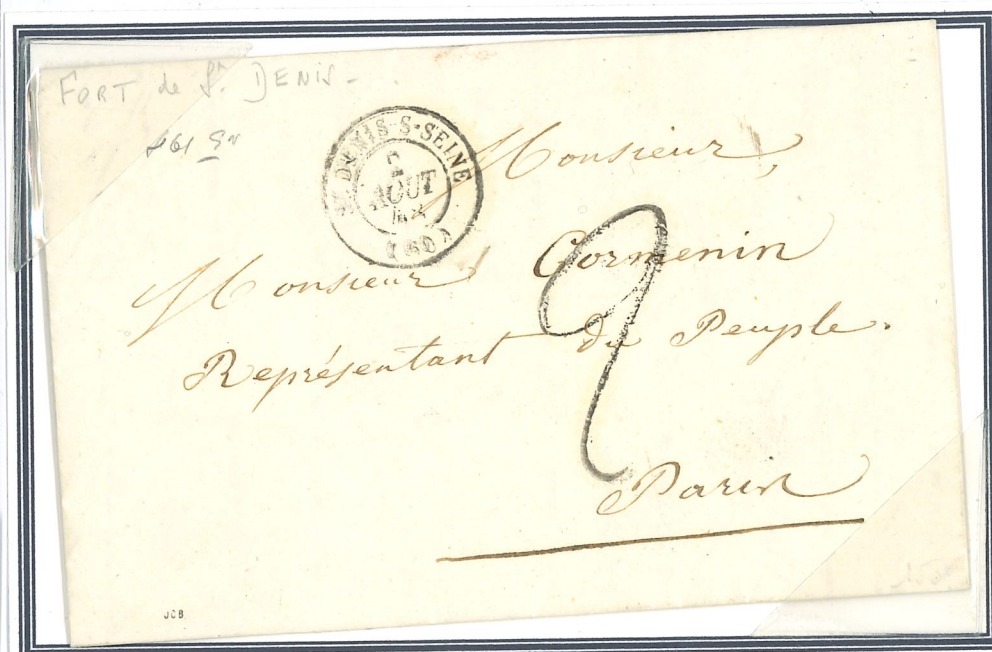 FORT de St. DENIS -
ST. DENIS-S-SEINE
2
AOUT
(60)
Monsieur,
Monsieur Cormenin
2
Représentant du Peuple.
Paris
JCB